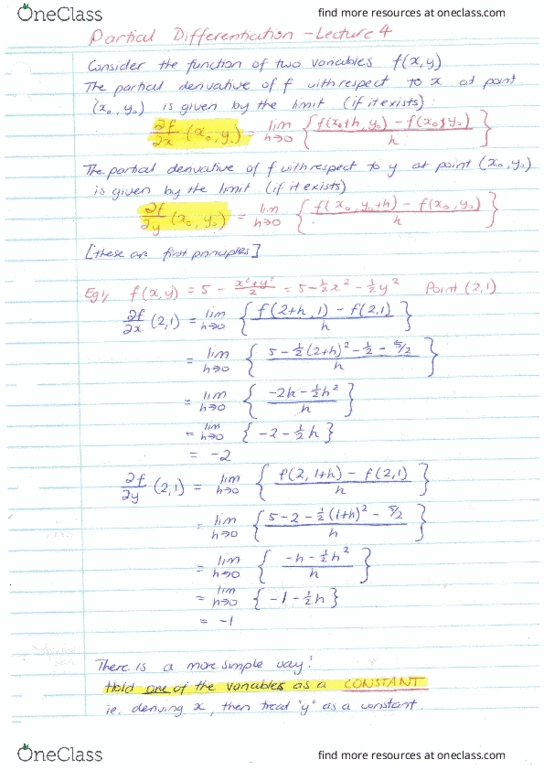 OneClass
find more resources at oneclass.com
Partical Differentiation - Lecture 4
Consider the function of two variables f(x,y)
The partial derivative of f with respect to x at point
(x₀, y₀) is given by the limit (if it exists):
∂f/∂x (x₀, y₀) = lim h→0 { f(x₀+h, y₀) - f(x₀, y₀) / h }
The partial derivative of f with respect to y at point (x₀, y₀)
is given by the limit (if it exists)
∂f/∂y (x₀, y₀) = lim h→0 { f(x₀, y₀+h) - f(x₀, y₀) / h }
[these are first principles]
Eg1. f(x,y) = 5 - x²+y²/2 = 5 - ½x² - ½y² Point (2,1)
∂f/∂x (2,1) = lim h→0 { f(2+h, 1) - f(2,1) / h }
= lim h→0 { 5 - ½(2+h)² - ½ - 5/2 / h }
= lim h→0 { -2h - ½h² / h }
= lim h→0 { -2 - ½h }
= -2
∂f/∂y (2,1) = lim h→0 { f(2, 1+h) - f(2,1) / h }
= lim h→0 { 5 - 2 - ½(1+h)² - 5/2 / h }
= lim h→0 { -h - ½h² / h }
= lim h→0 { -1 - ½h }
= -1
There is a more simple way!
Hold one of the variables as a CONSTANT
ie. deriving x, then treat "y" as a constant.
OneClass
find more resources at oneclass.com